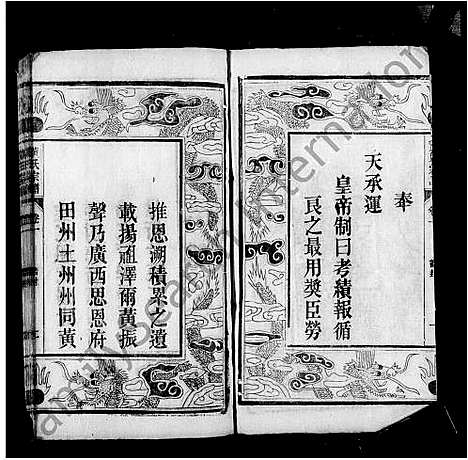 奉
天承運
皇帝制曰考績報循
良之最用獎臣勞
推恩溯積累之遺
載揚祖澤爾黃振
聲乃廣西思恩府
田州土州州同黃